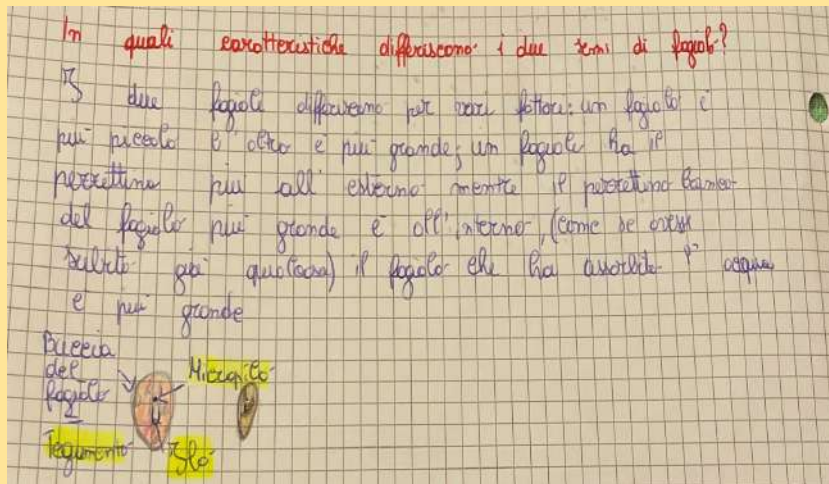 In quali caratteristiche differiscono i due semi di fagiolo?
I due fagioli differiscono per vari fattori: un fagiolo è
più piccolo e l'altro è più grande; un fagiolo ha il
pezzettino più all'esterno mentre il pezzettino bianco
del fagiolo più grande è all'interno, (come se avesse
subito già qualcosa) il fagiolo che ha assorbito l'acqua
è più grande
Buccia
del
fagiolo
Micropilo
Tegumento
Ilo